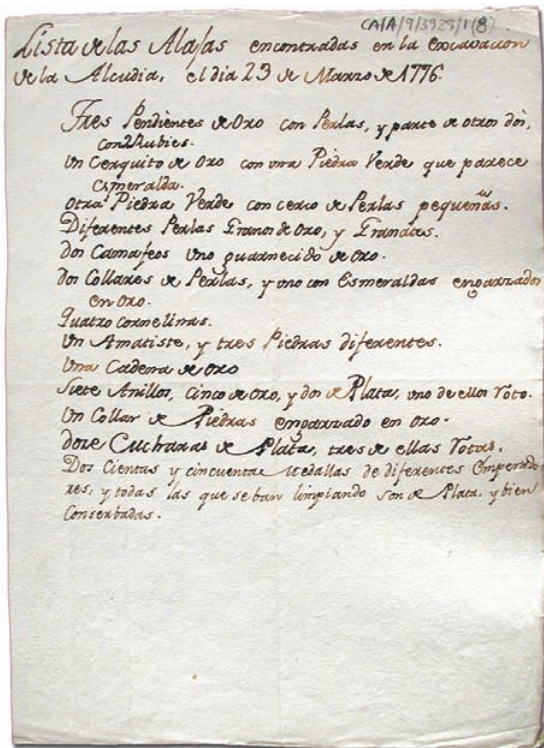 CAIA/9/3929/1(8)
Lista de las Alajas encontradas en la excavacion
de la Alcudia, el dia 23 de Marzo de 1776.
Tres Pendientes de Oro con Perlas, y parte de otros dos,
con Rubies.
Un Cerquito de Oro con una Piedra Verde que parece
Esmeralda.
Otra Piedra Verde con cerco de Perlas pequeñas.
Diferentes Perlas Granos de Oro, y Granates.
Dos Camafeos Uno guarnecido de oro.
Dos Collares de Perlas, y uno con Esmeraldas engarzados
en oro.
Quatro cornelinas.
Un Amatiste, y tres Piedras diferentes.
Una Cadena de oro
Siete Anillos, cinco de oro, y dos de Plata, uno de ellos Roto.
Un Collar de Piedras engarzado en oro.
doze Cucharas de Plata, tres de ellas Rotas.
Dos Cientas y cincuenta Medallas de diferentes Emperado
res, y todas las que se ban limpiando son de Plata, y bien
Conserbadas.